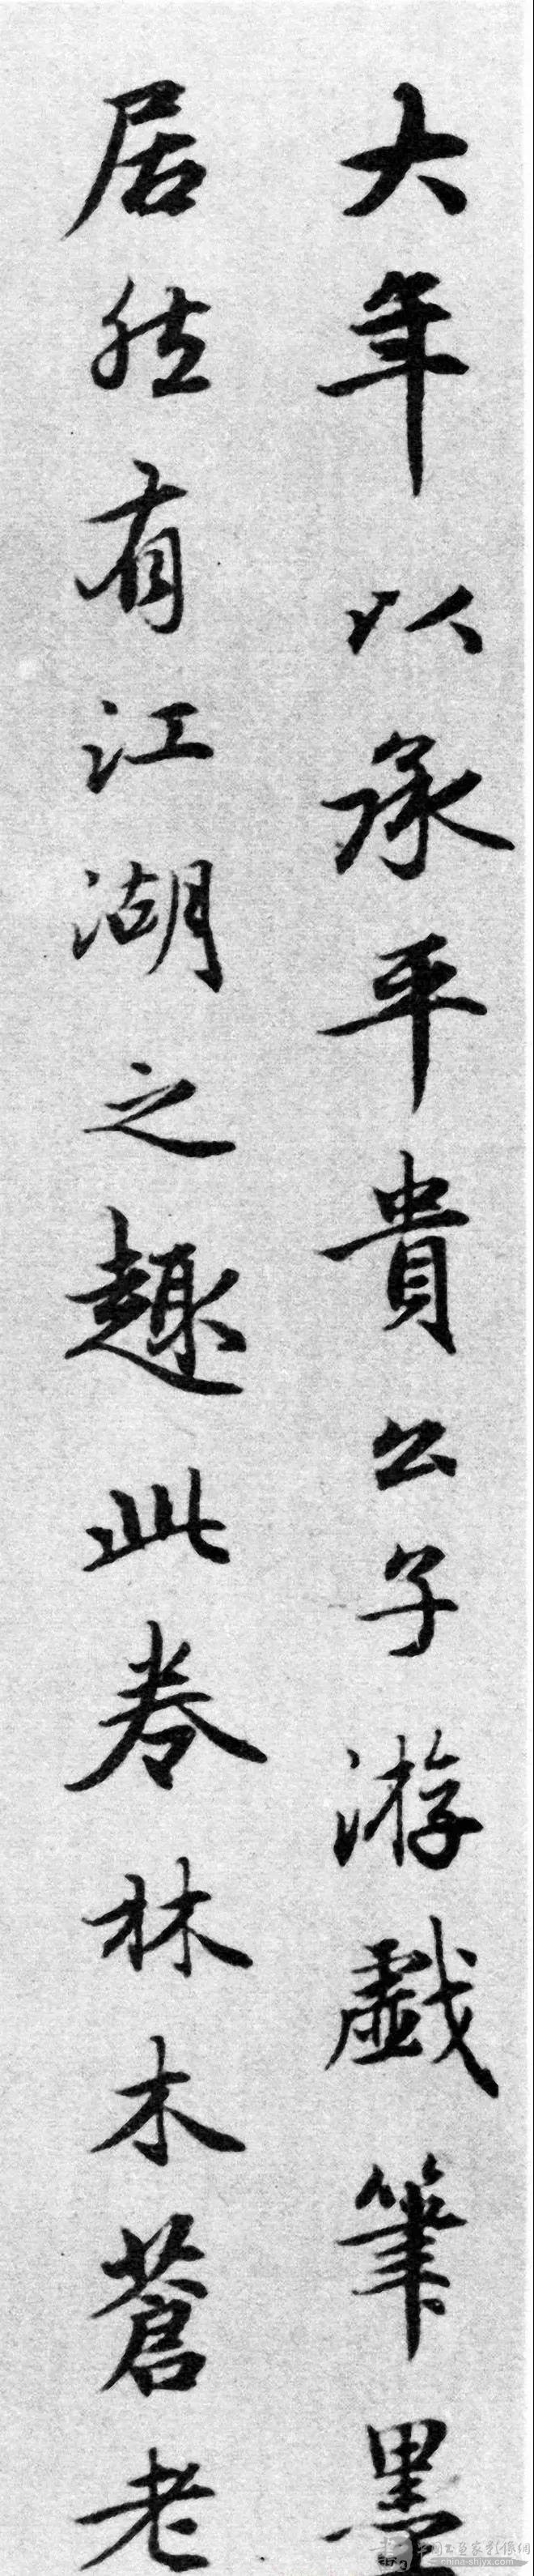 大年以承平貴公子游戲筆墨
居然有江湖之趣此卷林木蒼老
china-shjyx.com